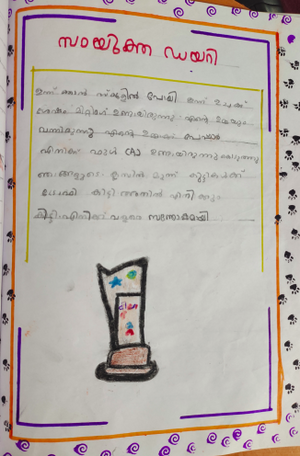 സംയുക്ത ഡയറി
ഇന്ന് ഞാൻ സ്കൂളിൽ പോയി ഇന്ന് ഉച്ചക്ക്
ശേഷം മീറ്റിംഗ് ഉണ്ടായിരുന്നു എന്റെ ഉമ്മയും
വന്നിരുന്നു എന്റെ ഉമ്മക്ക് പേപ്പർ
എനിക്ക് ഫുൾ (A) ഉണ്ടായിരുന്നു
ഞങ്ങളുടെ ക്ലാസിൽ മൂന്ന് കുട്ടികൾക്ക്
ട്രോഫി കിട്ടി അതിൽ എനിക്കും
കിട്ടി എനിക്ക് വളരെ സന്തോഷമായി